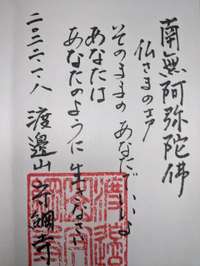 南無阿弥陀佛
仏さまの声
そのままのあなたでいいよ
あなたは
あなたのように生きなさい
二〇二六・一・八 渡邉山